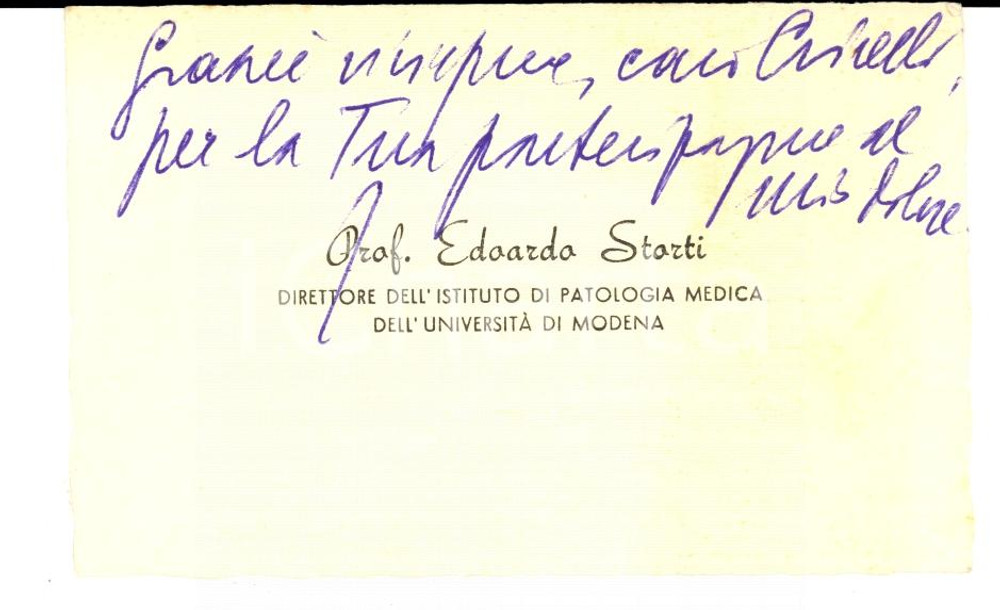 Grazie vivissime, caro Crivelli,
per la Tua partecipazione al
mio dolore.
Prof. Edoardo Storti
DIRETTORE DELL'ISTITUTO DI PATOLOGIA MEDICA
DELL'UNIVERSITÀ DI MODENA